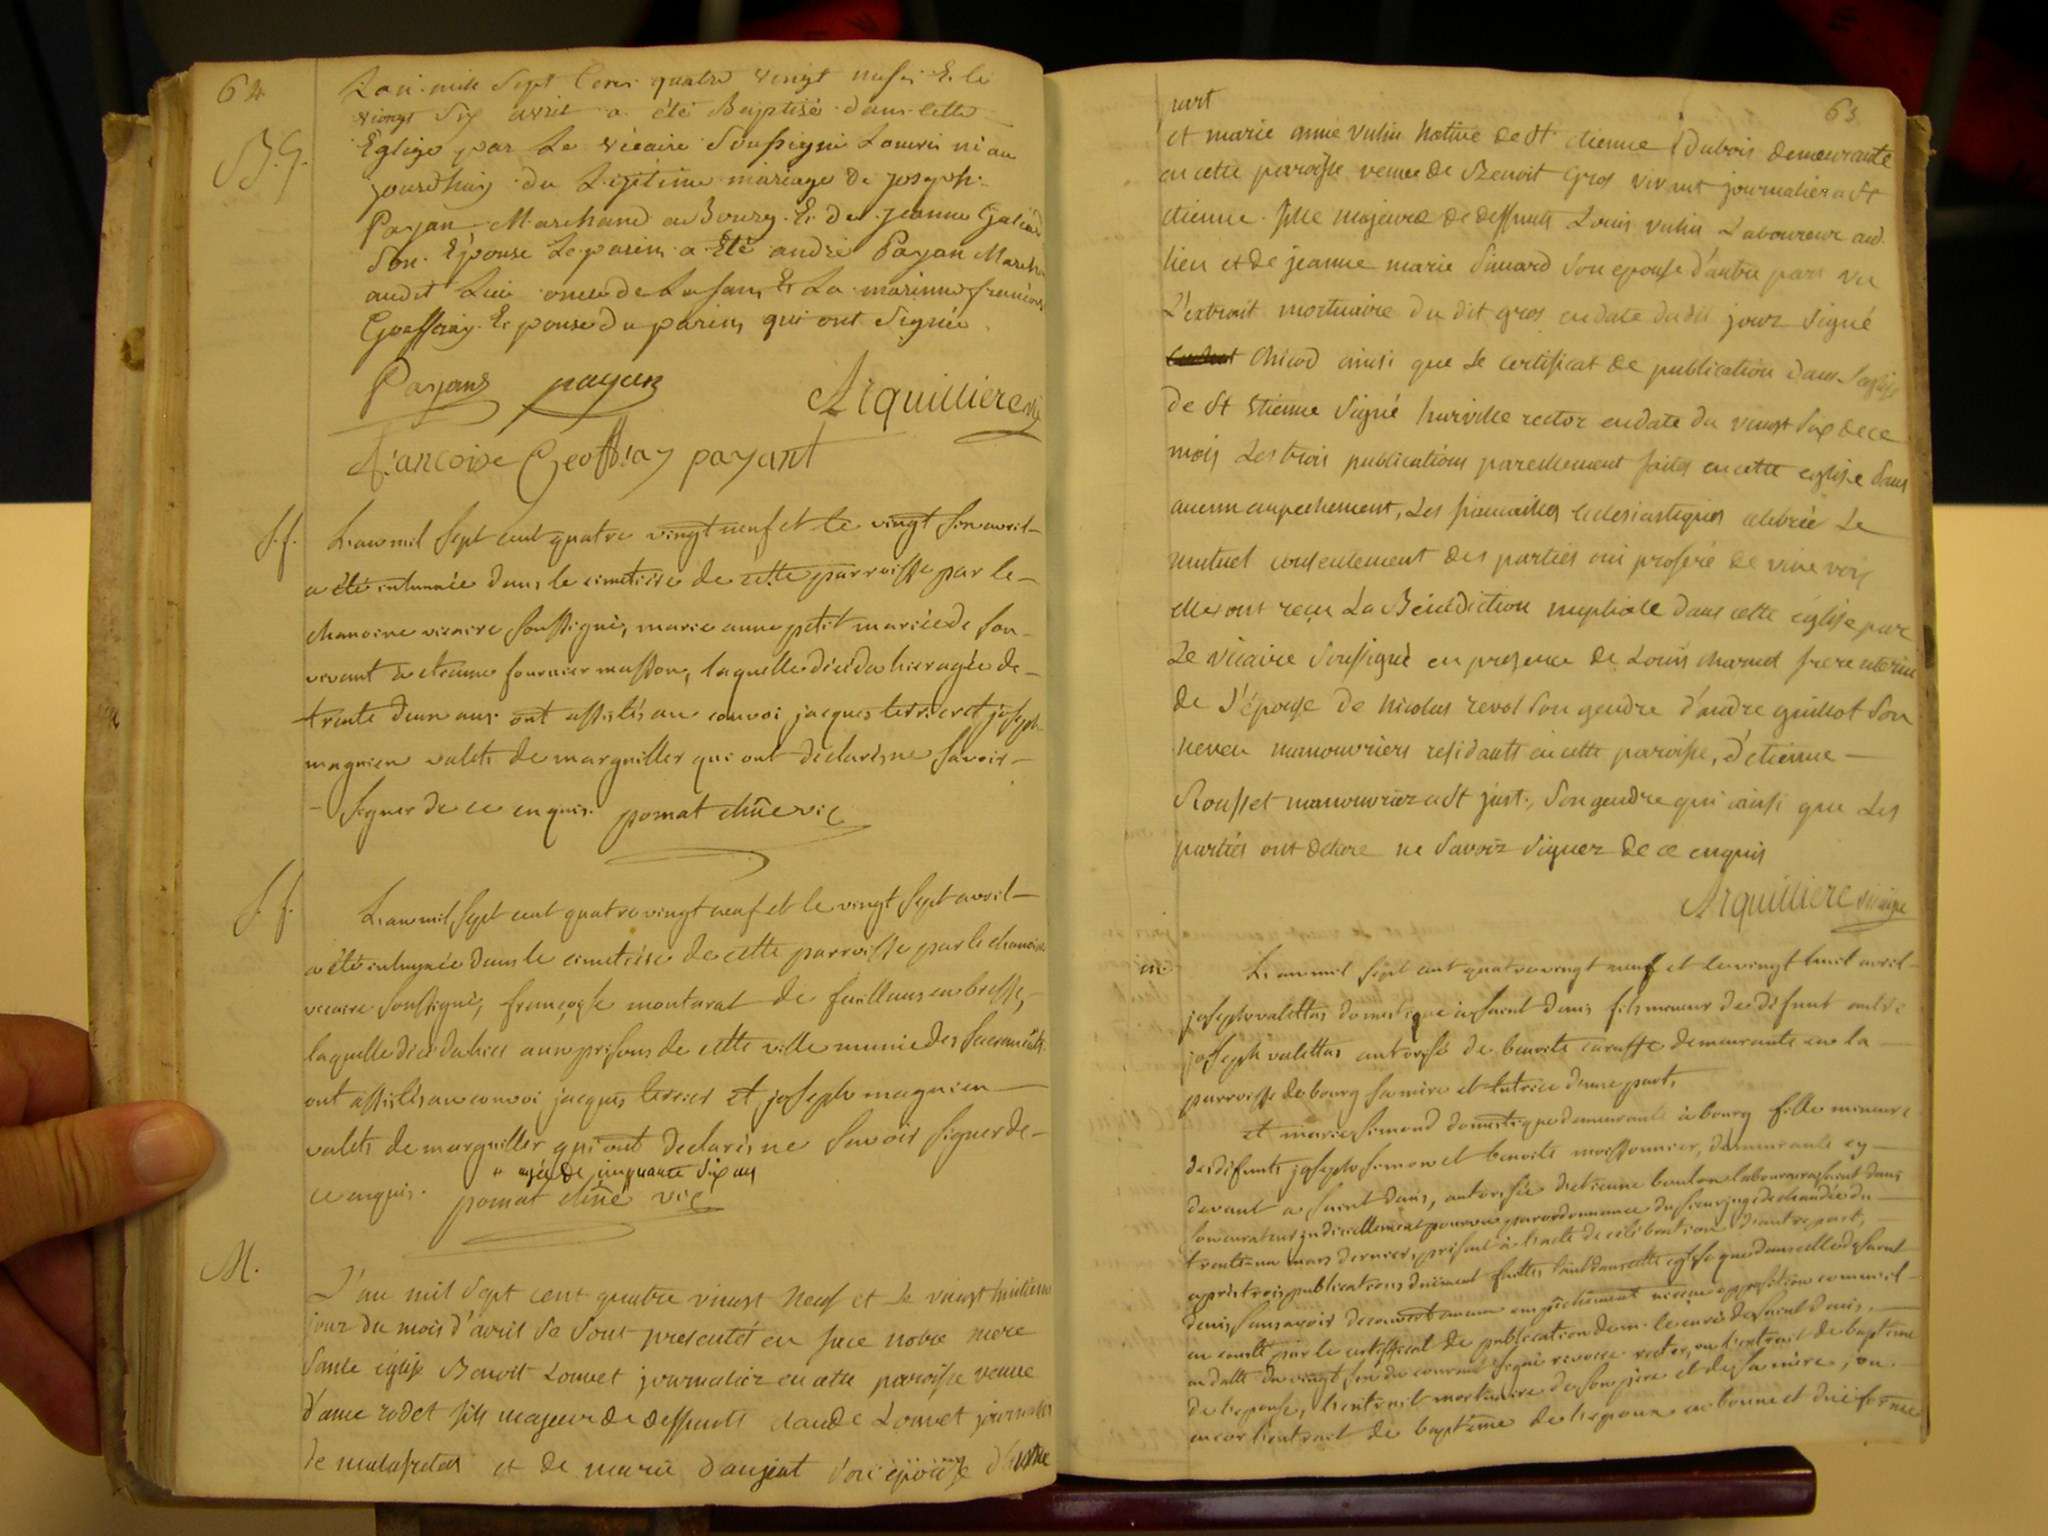 64
B. G.
L'an mille Sept Cent quatre vingt neuf Et le
vingt Six avril a été Baptisé dans cette
Eglise par Le vicaire Soussigné Louis né au
jourdhuy du Légitime mariage de joseph
Payan Marchand a Bourg Et de jeanne
Son Epouse Le parein a Eté andré Payan March
audit Lieu oncle de Lenfant Et La mareinne francoise
Geoffray Epouse du parein qui ont Signée
Payans payan Arquilliere vic
francoise Geoffray payant
S. f.
L'an mil Sept cent quatre vingt neuf et le vingt Six avril
a été inhumée dans le cimetiere de cette parroisse par le
chanoine vicaire soussigné, marie anne petit mariée de son
vivant a etienne fournier masson, laquelle décéda hier agée de
trente deux ans ont assistés au convoi jacques terrier et joseph
magnien valets de marguiller qui ont déclarés ne savoir
signer de ce enquis. pomat chñe vic
S. f.
L'an mil sept cent quatre vingt neuf et le vingt sept avril
a été inhumée dans le cimetiere de cette parroisse par le chanoine
vicaire soussigné, françoise montarat de foillans en bresse,
laquelle décéda hier aux prisons de cette ville munie des sacrements
ont assistés au convoi jacques terrier et joseph magnien
valets de marguiller qui ont declarés ne savoir signer de
" agée de cinquante six ans
ce enquis. pomat chñe vic
M.
L'an mil Sept cent quatre vingt neuf et Le vingt huitieme
jour du mois d'avril Se Sont presentés en face notre mere
Sainte église Benoit Louvet journalier en cette paroisse veuve
d'anne rodet fils majeur de deffunts claude Louvet journalier
de malafretas et de marie danjeat Son épouse d'une
65
part
et marie anne vuhin Native de St etienne Dubois demeurante
en cette paroisse veuve de Benoit Gros vivant journalier a St
etienne. fille majeure de deffunts Louis vuhin Laboureur aud.
lieu et de jeanne marie Simard Son epouse d'autre part vu
L'extrait mortuaire du dit gros en date du dit jour Signé
chicod ainsi que Le certificat de publication dans l'église
de St Etienne Signé hurville rector en date du vingt Six de ce
mois Les trois publications pareillement faites en cette eglise Sans
aucun empechement, Les fiancailles Eclesiastiques célébrée Le
mutuel consentement des parties oui proferé de vive voix
elles ont reçu La Bénédiction nuptiale dans cette église par
Le vicaire Soussigné en presence de Louis charnet frere uterin
de L'épouse de Nicolas revol Son gendre d'andre guillot Son
neveu manouvriers residants en cette paroisse, d'etienne
Rousset manouvrier a St just, Son gendre qui ainsi que Les
parties ont déclaré ne Savoir Signer de ce enquis
Arquilliere vicaire
m.
L'an mil sept cent quatre vingt neuf et le vingt huit avril
joseph valettas domestique à saint denis fils mineur de défunt autre
joseph valettas autorisé de benoite caruffe demeurante en la
parroisse de bourg sa mère et tutrice d'une part,
et marie simond domestique demeurante à bourg fille mineure
des défunts joseph simon et benoite moissonnier, demeurante cy
devant a saint denis, autorisée d'etienne bouton laboureur a saint denis
son curateur judiciellement pourvu par ordonnance du sieur juge de chandée du
trente un mars dernier, présent à l'acte de célébration d'autre part,
après trois publications duement faites tant dans cette église que dans celle de saint
denis sans avoir découvert aucun empêchement ni cune opposition comme il
en conste par le certificat de publication de m. le curé de saint denis,
en datte du vingt six du courant signé recteur, vu l'extrait de baptême
de l'epouse, l'extrait mortuaire de son père et de sa mère, vu
encor l'extrait de baptême de l'epoux en bonne et düe forme